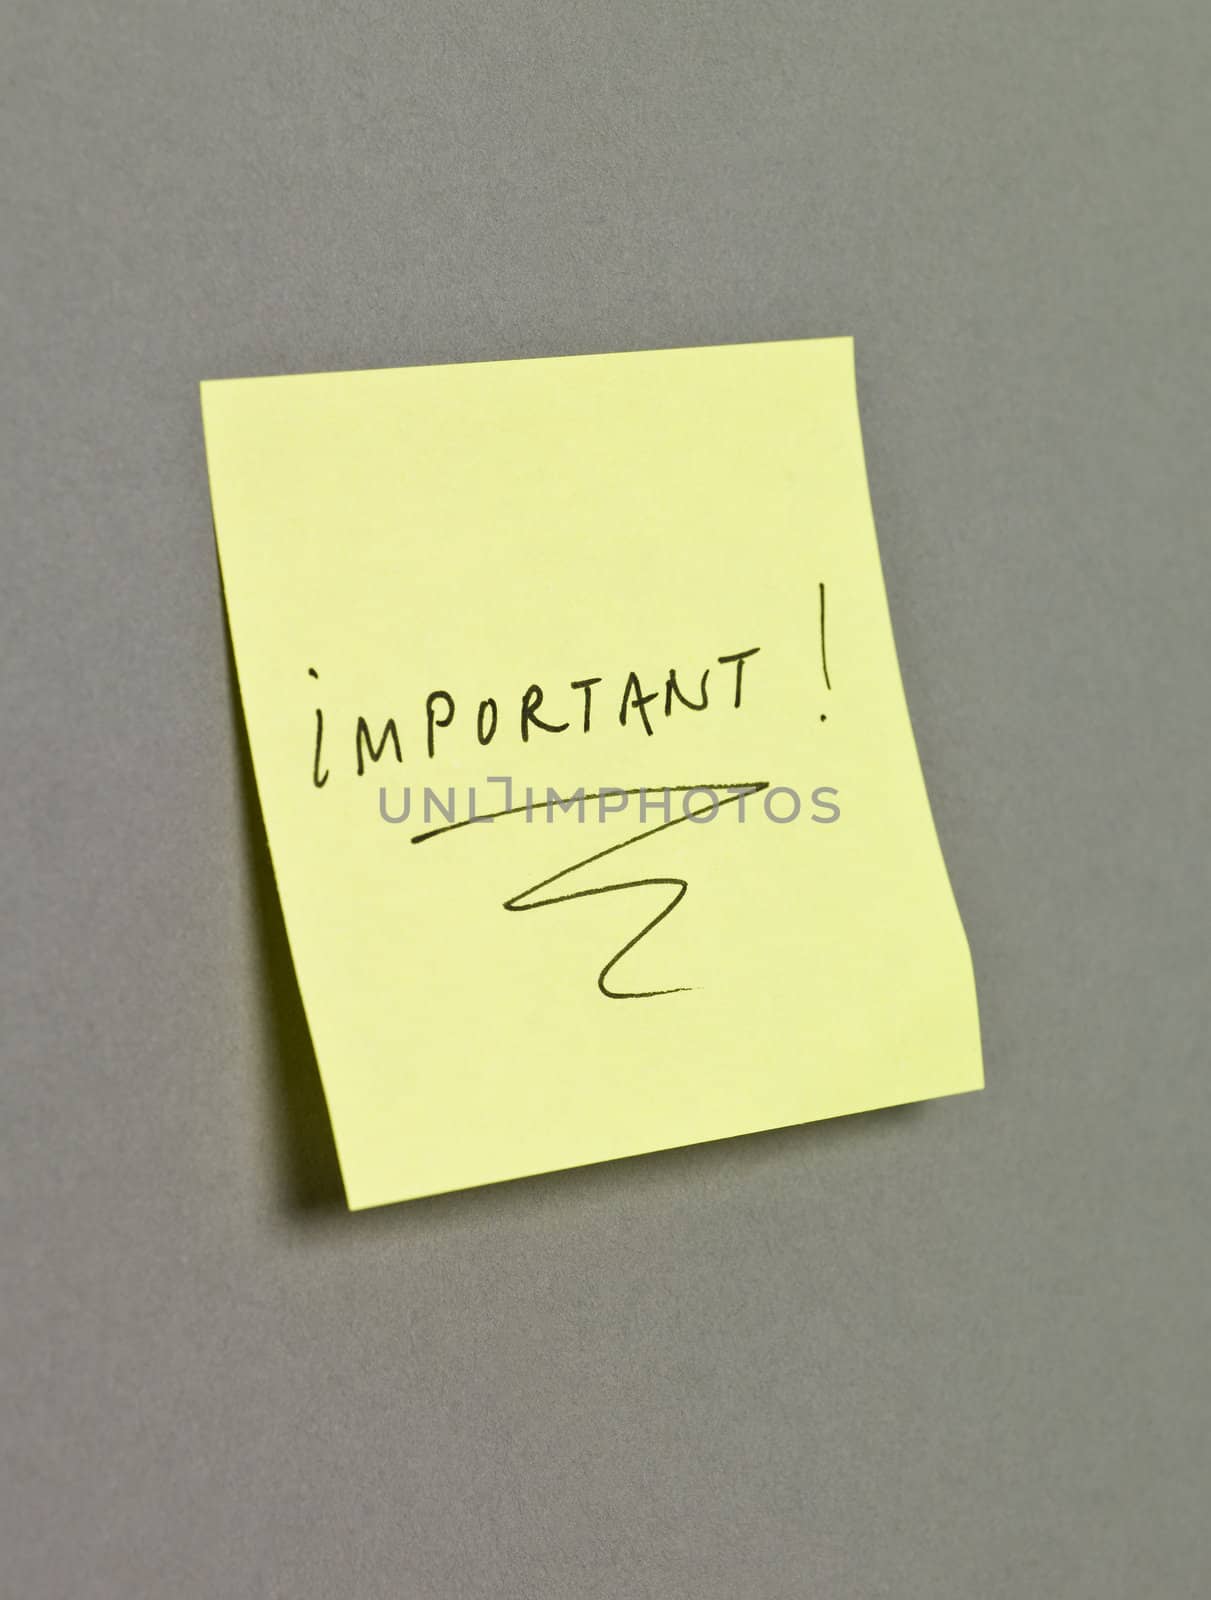 iMPORTANT !
UNLIMPHOTOS